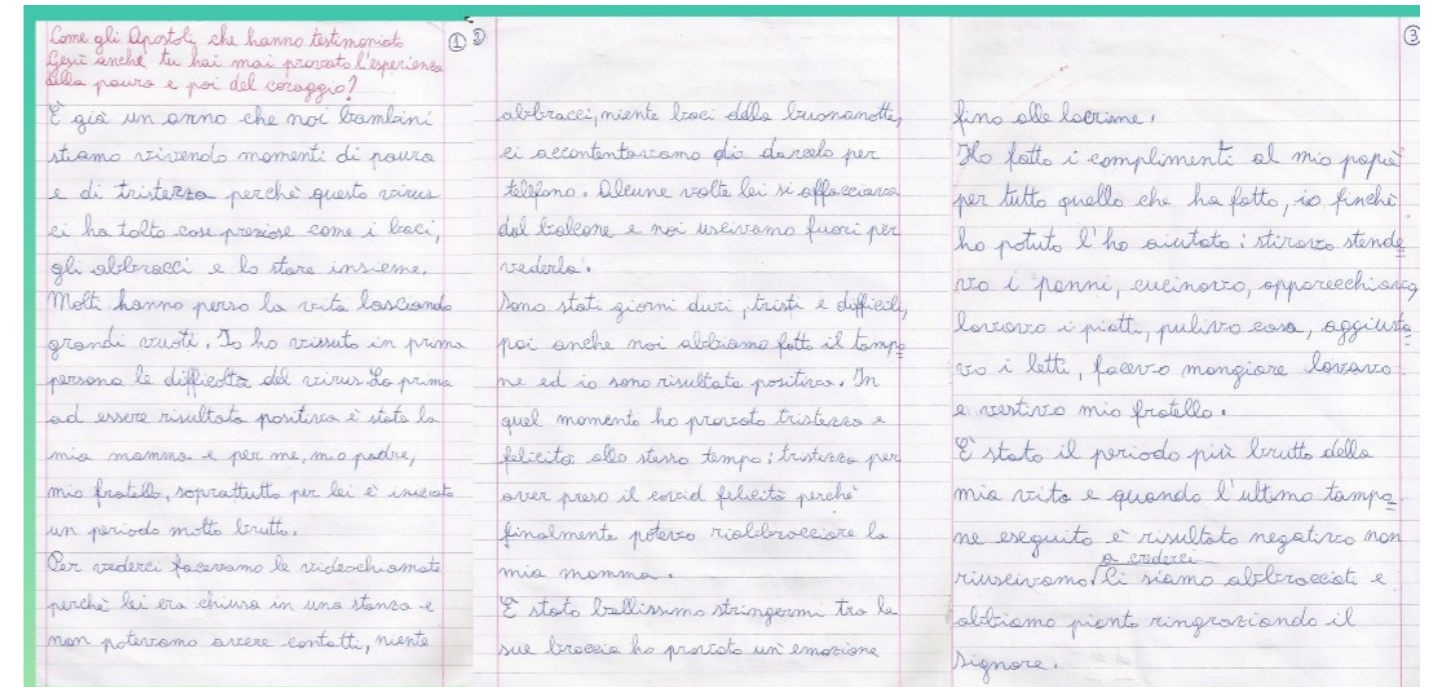 Come gli Apostoli che hanno testimoniato
Gesù anche tu hai mai provato l'esperienza
della paura e poi del coraggio?
①
È già un anno che noi bambini
stiamo vivendo momenti di paura
e di tristezza perchè questo virus
ci ha tolto cose preziose come i baci,
gli abbracci e lo stare insieme.
Molti hanno perso la vita lasciando
grandi vuoti. Io ho vissuto in prima
persona le difficoltà del virus. La prima
ad essere risultata positiva è stata la
mia mamma e per me, mio padre,
mio fratello, soprattutto per lei è iniziato
un periodo molto brutto.
Per vederci facevamo le videochiamate
perchè lei era chiusa in una stanza e
non potevamo avere contatti, niente
②
abbracci, niente baci della buonanotte,
ci accontentavamo di darcelo per
telefono. Alcune volte lei si affacciava
dal balcone e noi uscivamo fuori per
vederla.
Sono stati giorni duri, tristi e difficili,
poi anche noi abbiamo fatto il tampo
ne ed io sono risultata positiva. In
quel momento ho provato tristezza e
felicità allo stesso tempo: tristezza per
aver preso il covid felicità perchè
finalmente potevo riabbracciare la
mia mamma.
È stato bellissimo stringermi tra le
sue braccia ho provato un'emozione
③
fino alle lacrime.
Ho fatto i complimenti al mio papà
per tutto quello che ha fatto, io finchè
ho potuto l'ho aiutato: stiravo stende
vo i panni, cucinavo, apparecchiavo,
lavavo i piatti, pulivo casa, aggiusta
vo i letti, facevo mangiare lavavo
e vestivo mio fratello.
È stato il periodo più brutto della
mia vita e quando l'ultimo tampo
ne eseguito è risultato negativo non
riuscivamo a crederci Ci siamo abbracciati e
abbiamo pianto ringraziando il
Signore.